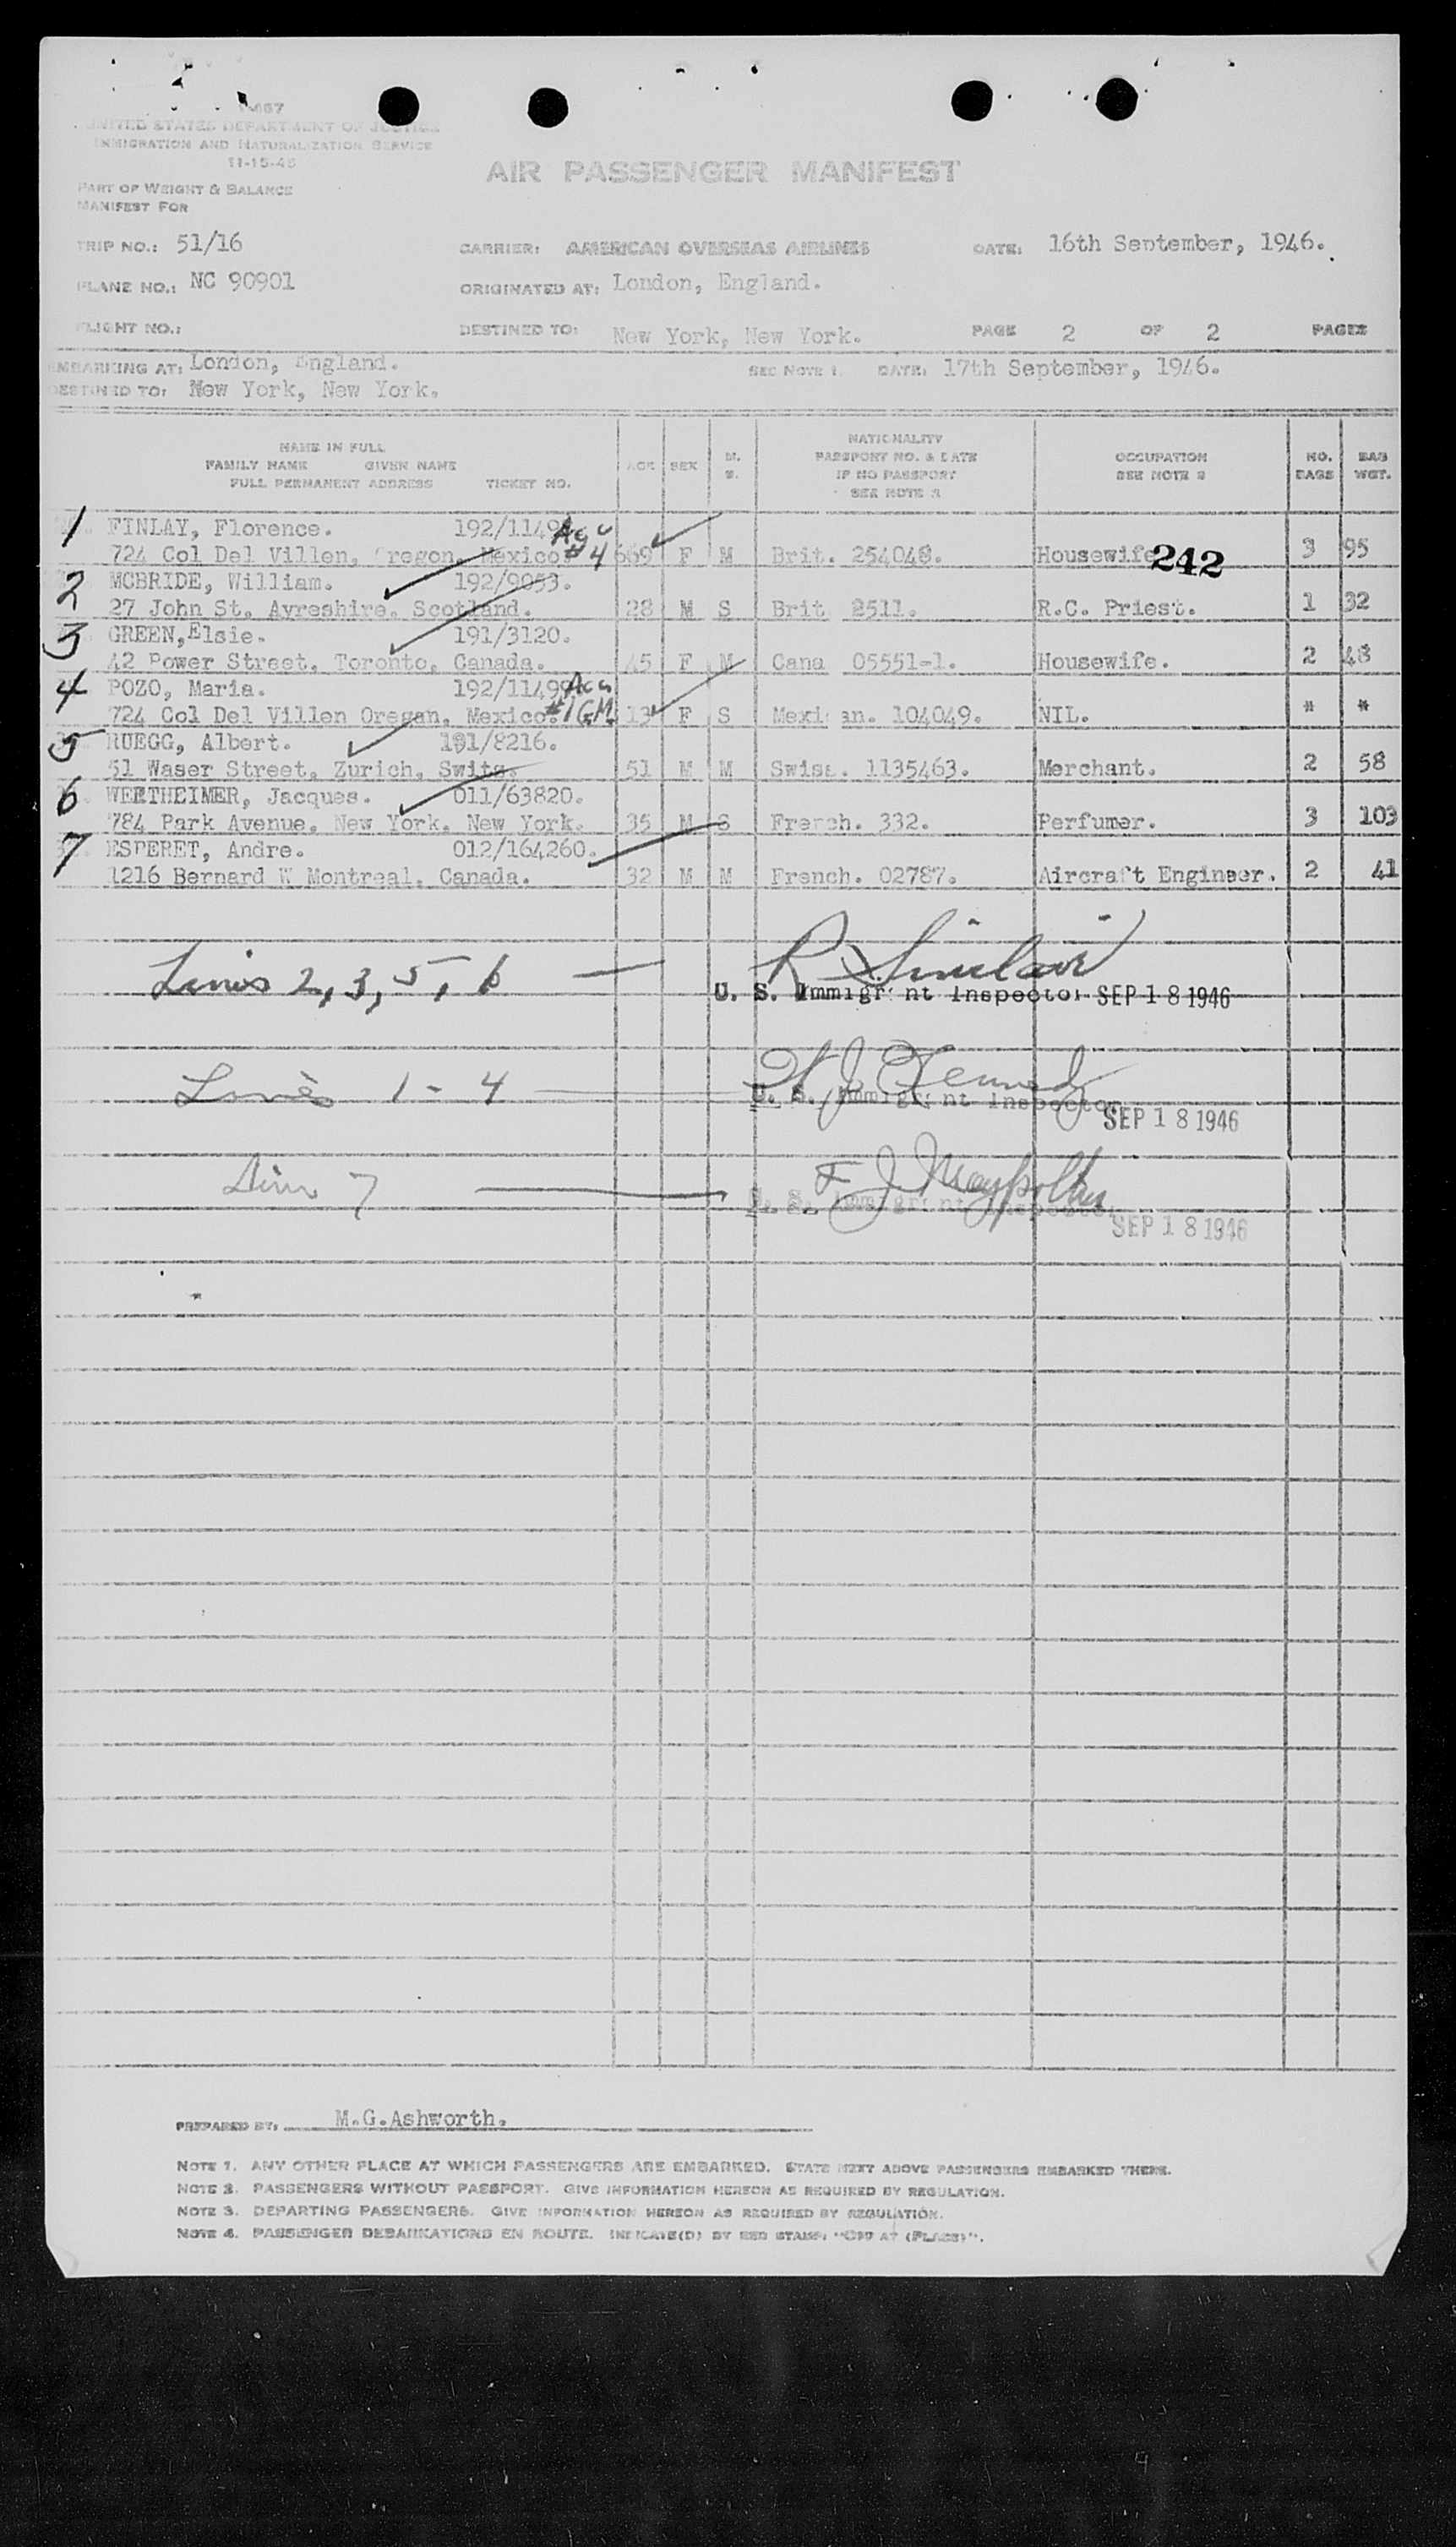 I-467
UNITED STATES DEPARTMENT OF JUSTICE
IMMIGRATION AND NATURALIZATION SERVICE
11-15-45
AIR PASSENGER MANIFEST
PART OF WEIGHT & BALANCE
MANIFEST FOR
TRIP NO.: 51/16 CARRIER: AMERICAN OVERSEAS AIRLINES DATE: 16th September, 1946.
PLANE NO.: NC 90901 ORIGINATED AT: London, England.
FLIGHT NO.: DESTINED TO: New York, New York. PAGE 2 OF 2 PAGES
EMBARKING AT: London, England. SEE NOTE 1. DATE: 17th September, 1946.
DESTINED TO: New York, New York.
NAME IN FULL
FAMILY NAME GIVEN NAME
FULL PERMANENT ADDRESS TICKET NO. AGE SEX M. S. NATIONALITY PASSPORT NO. & DATE IF NO PASSPORT SEE NOTE 2 OCCUPATION SEE NOTE 3 NO. BAGS BAG WGT.
1 FINLAY, Florence. 192/1149
724 Col Del Villen, Oregon, Mexico. #4 69 F M Brit. 254048. Housewife 242 3 95
2 MCBRIDE, William. 192/9053.
27 John St. Ayreshire, Scotland. 28 M S Brit 2511. R.C. Priest. 1 32
3 GREEN, Elsie. 191/3120.
42 Power Street, Toronto, Canada. 45 F M Cana 05551-1. Housewife. 2 48
4 POZO, Maria. 192/11499 Acc
724 Col Del Villen Oregan, Mexico. #1 GM 13 F S Mexican. 104049. NIL. * *
5 RUEGG, Albert. 191/8216.
51 Waser Street, Zurich, Switz. 51 M M Swiss. 1135463. Merchant. 2 58
6 WERTHEIMER, Jacques. 011/63820.
784 Park Avenue, New York, New York. 35 M S French. 332. Perfumer. 3 103
7 ESPERET, Andre. 012/164260.
1216 Bernard W Montreal, Canada. 32 M M French. 02787. Aircraft Engineer. 2 41
Lines 2, 3, 5, 6 — R Sinclair
U. S. Immigrant Inspector SEP 18 1946
Lines 1 - 4 — J Kennedy
U. S. Immigrant Inspector
SEP 18 1946
Line 7 — F J
U. S. Immigrant Inspector
SEP 18 1946
PREPARED BY: M.G.Ashworth.
NOTE 1. ANY OTHER PLACE AT WHICH PASSENGERS ARE EMBARKED. STATE NEXT ABOVE PASSENGERS EMBARKED THERE.
NOTE 2. PASSENGERS WITHOUT PASSPORT. GIVE INFORMATION HEREON AS REQUIRED BY REGULATION.
NOTE 3. DEPARTING PASSENGERS. GIVE INFORMATION HEREON AS REQUIRED BY REGULATION.
NOTE 4. PASSENGER DEBARKATIONS EN ROUTE. INDICATE(D) BY RED STAMP: "OFF AT (PLACE)".